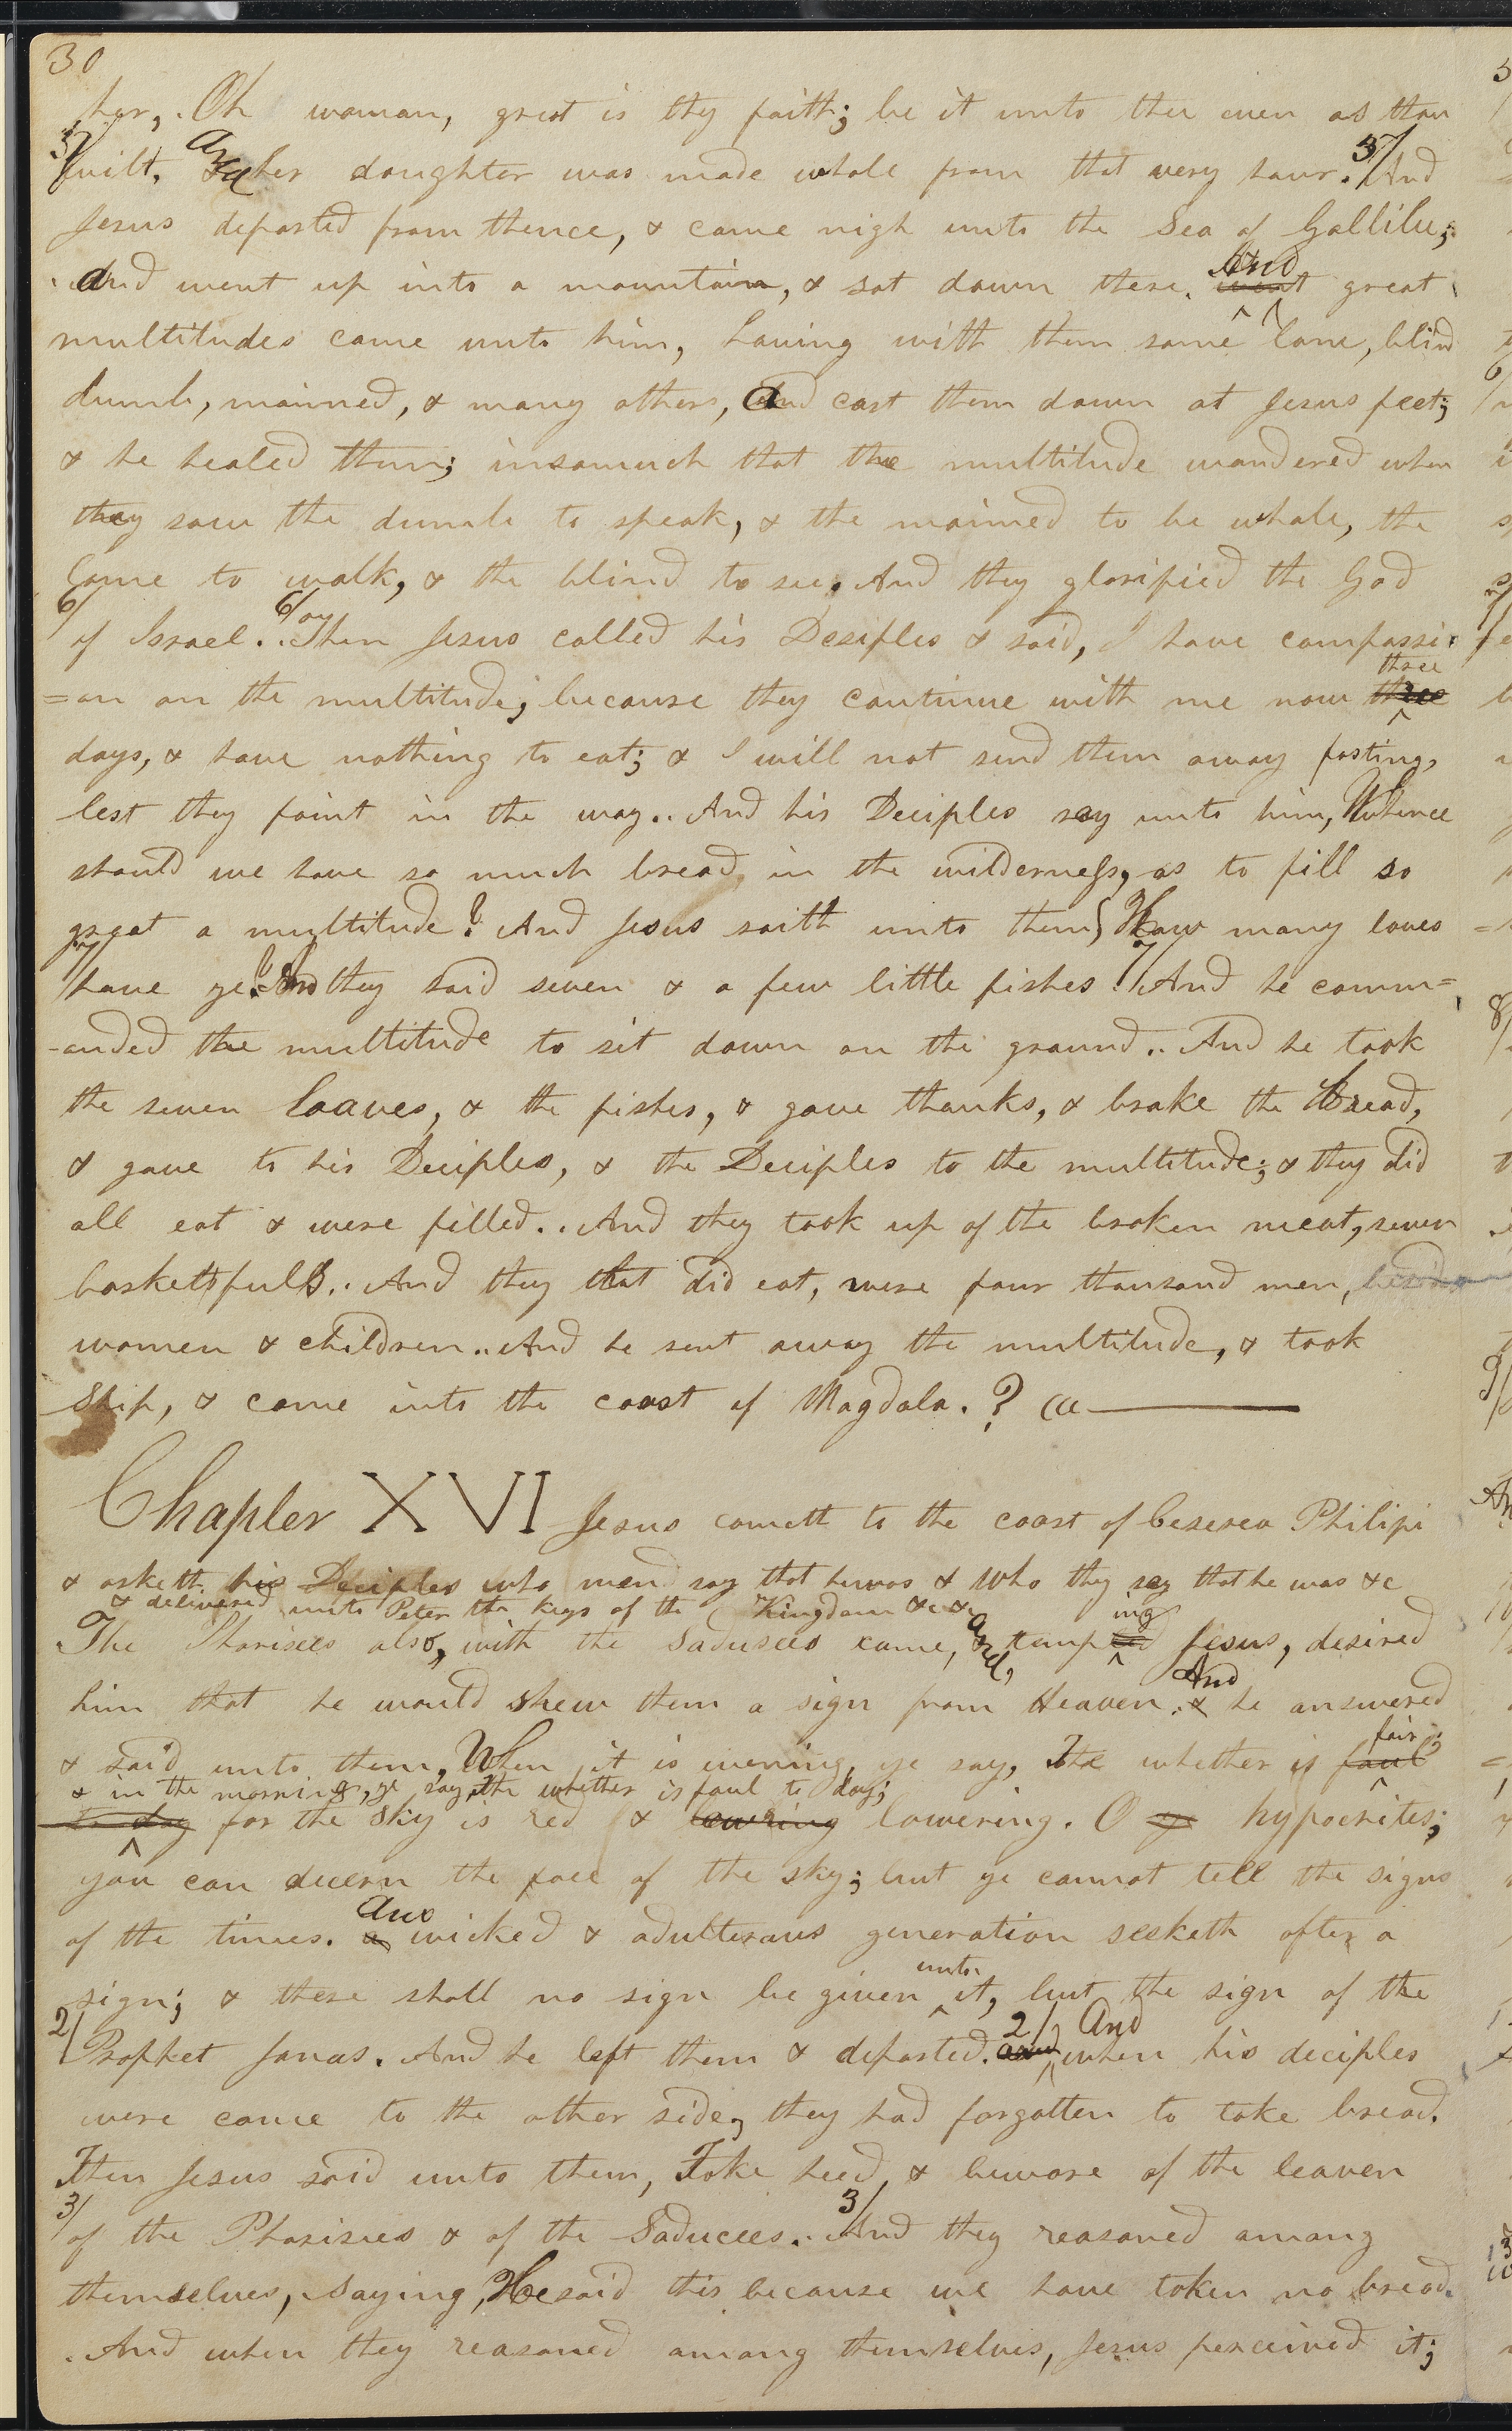 30
her, Oh woman, great is thy faith; be it unto thee even as thou
5/ wilt. And her daughter was made whole from that very hour. 5/ And
Jesus departed from thence, & came nigh unto the Sea of Gallilee;
and went up into a mountain, & sat down there. And great
multitudes came unto him, having with them some lame, blind
dumb, maimed, & many others, and cast them down at Jesus feet;
& he healed them; insomuch that the multitude wondered when
they saw the dumb to speak, & the maimed to be whole, the
lame to walk, & the blind to see. And they glorified the God
6/ of Israel. 6/ Then Jesus called his Desiples & said, I have compassi
=on on the multitude; because they continue with me now three three
days, & have nothing to eat; & I will not send them away fasting,
lest they faint in the way. And his Deciples say unto him, Whence
should we have so much bread, in the wilderness, as to fill so
great a multitude? And Jesus saith unto them, How many loves
7/ have ye? And they said seven & a few little fishes. 7/ And he comm=
-anded the multitude to sit down on the ground. And he took
the seven loaves, & the fishes, & gave thanks, & brake the bread,
& gave to his Deciples, & the Deciples to the multitude; & they did
all eat & were filled. And they took up of the broken meat, seven
baskets fulls. And they that did eat, were four thousand men, besides
women & children. And he sent away the multitude, & took
Ship, & came into the coast of Magdala. ?
Chapter XVI Jesus cometh to the coast of Ceserea Philipi
& asketh his Deciples who men say that he was & who they say that he was &c
& delivered unto Peter the keys of the Kingdom &c &c
The Pharisees also, with the Sadusees came, and, tempeding Jesus, desired
him that he would shew them a sign from Heaven. & And he answered
& said unto them, When it is evening ye say, The whether is foul fair;
& in the morning, ye say, the whether is foul to day;
to day for the sky is red & lowring lowering. O ye hypocrites;
you can decern the face of the sky; but ye cannot tell the signs
of the times. a wicked & adulterous generation seeketh after a
sign; & there shall no sign be given unto it, but the sign of the
2/ Prophet Jonas. And he left them & departed. 2/ and And when his deciples
were come to the other side, they had forgotten to take bread.
Then Jesus said unto them, Take heed, & beware of the leaven
3/ of the Pharisees & of the Saducees. 3/ And they reasoned among
themselves, saying, He said this because we have taken no bread.
And when they reasoned among themselves, Jesus perceived it;